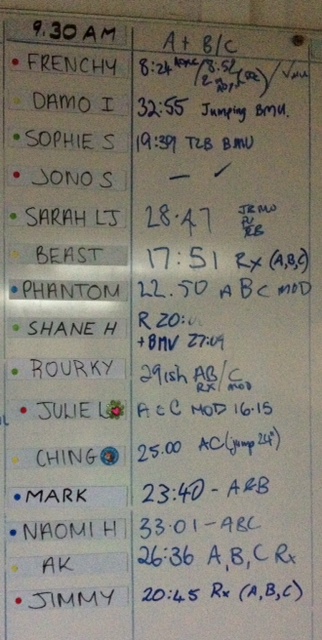 9.30 AM
A + B/C
FRENCHY 8:24 /8:52
DAMO I 32:55 Jumping BMU.
SOPHIE S 19:39 TLB BMU
JONO S — ✓
SARAH LJ 28.47
BEAST 17:51 Rx (A,B,C)
PHANTOM 22.50 A B C MOD
SHANE H R 20:
+ BMU 27:09
ROURKY 29ish AB/C
RX MOD
JULIE L A & C MOD 16.15
CHING 25.00 AC (jump 24")
MARK 23:40 - A&B
NAOMI H 33.01 - ABC
AK 26:36 A,B,C Rx
JIMMY 20:45 Rx (A,B,C)